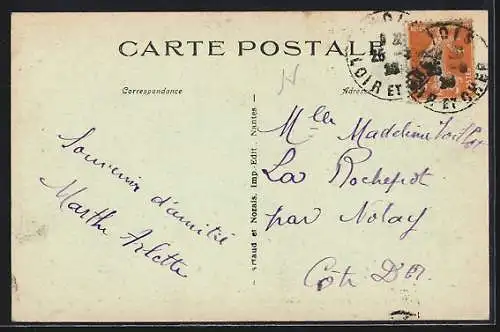 CARTE POSTALE
Correspondance
Adresse
LOIR ET CHER
Artaud et Nozais, Imp.-Edit., Nantes -
Souvenir d'amitié
Marthe Arlette
Mlle Madeleine
La Rochepot
par Nolay
Côte D'Or